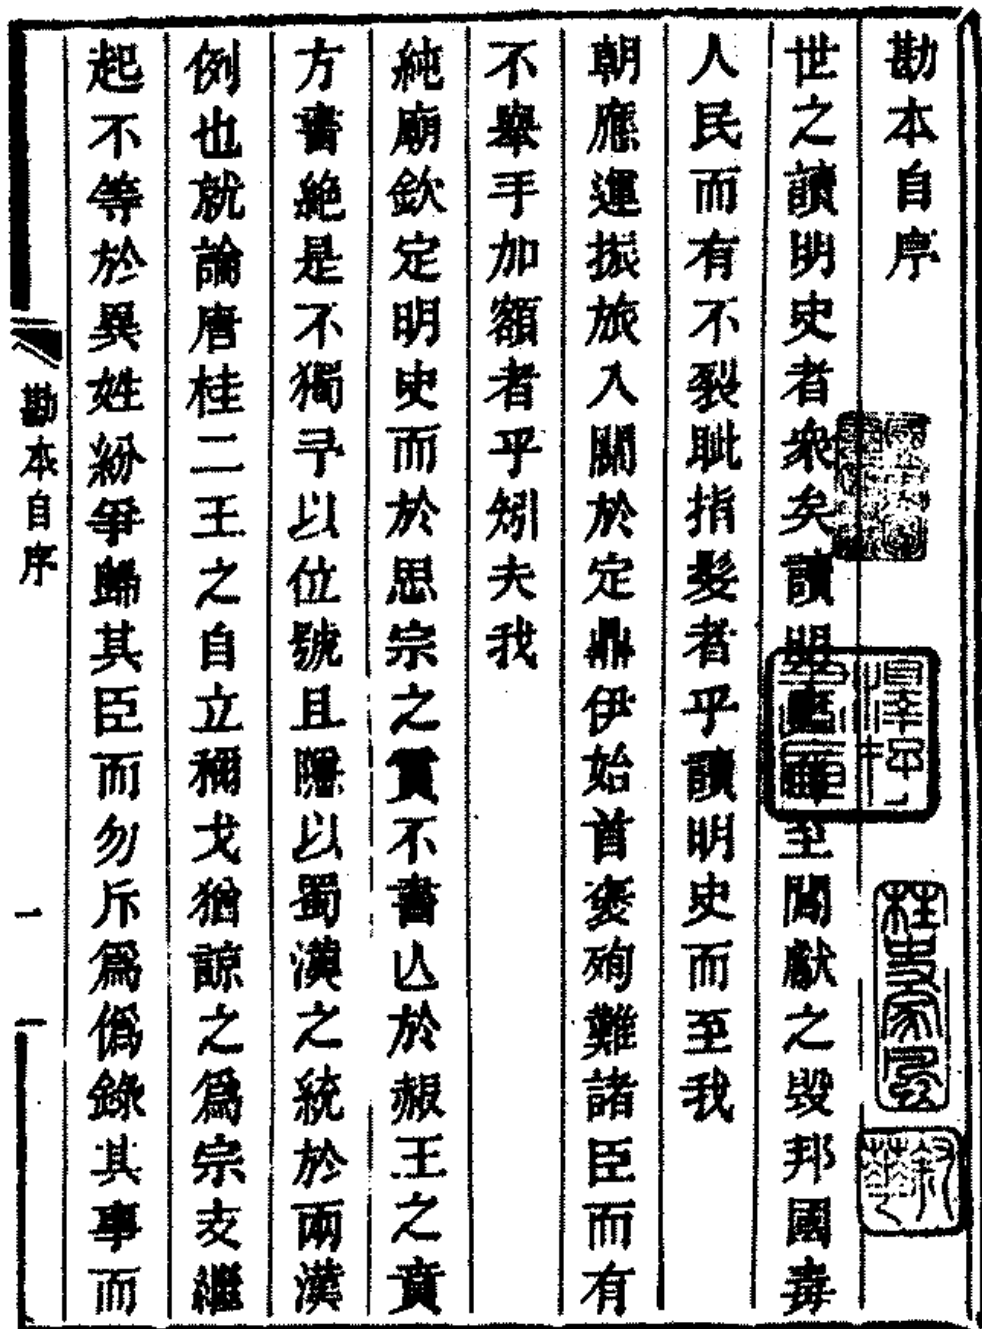 勘本自序
世之讀明史者衆矣讀明史至闖獻之毀邦國毒
人民而有不裂眦指髮者乎讀明史而至我
朝應運振旅入關於定鼎伊始首褒殉難諸臣而有
不舉手加額者乎矧夫我
純廟欽定明史而於思宗之實不書亾於赧王之賁
方書絶是不獨予以位號且隱以蜀漢之統於兩漢
例也就論唐桂二王之自立稱戈猶諒之爲宗支繼
起不等於異姓紛爭歸其臣而勿斥爲僞錄其事而
勘本自序
一